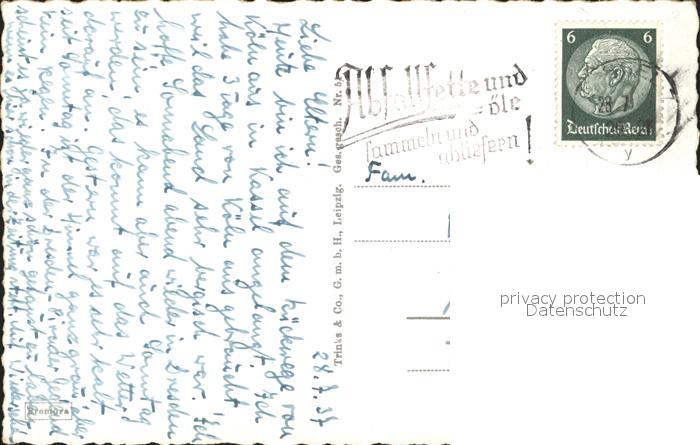 28.7.37
Liebe Eltern!
Heute bin ich auf dem Rückwege von
Köln aus in Kassel angelangt. Ich
habe 3 Tage von Köln aus gebraucht
weil das Land sehr bergisch war. Ich
hoffe Sonnabend abend wieder in Dresden
zu sein es kann aber auch Sonntag
werden, das kommt auf das Wetter
darauf an. Gestern war es sehr kalt
seit Sonntag ist der Himmel ganz grau aber
kein Regen. In der Dresden
Trinks & Co., G. m. b. H., Leipzig. Ges. gesch. Nr.
Bromüra
Abfallfette und
-öle
sammeln und
abliefern!
6 6
Deutsches Reich
y
Fam.
privacy protection
Datenschutz